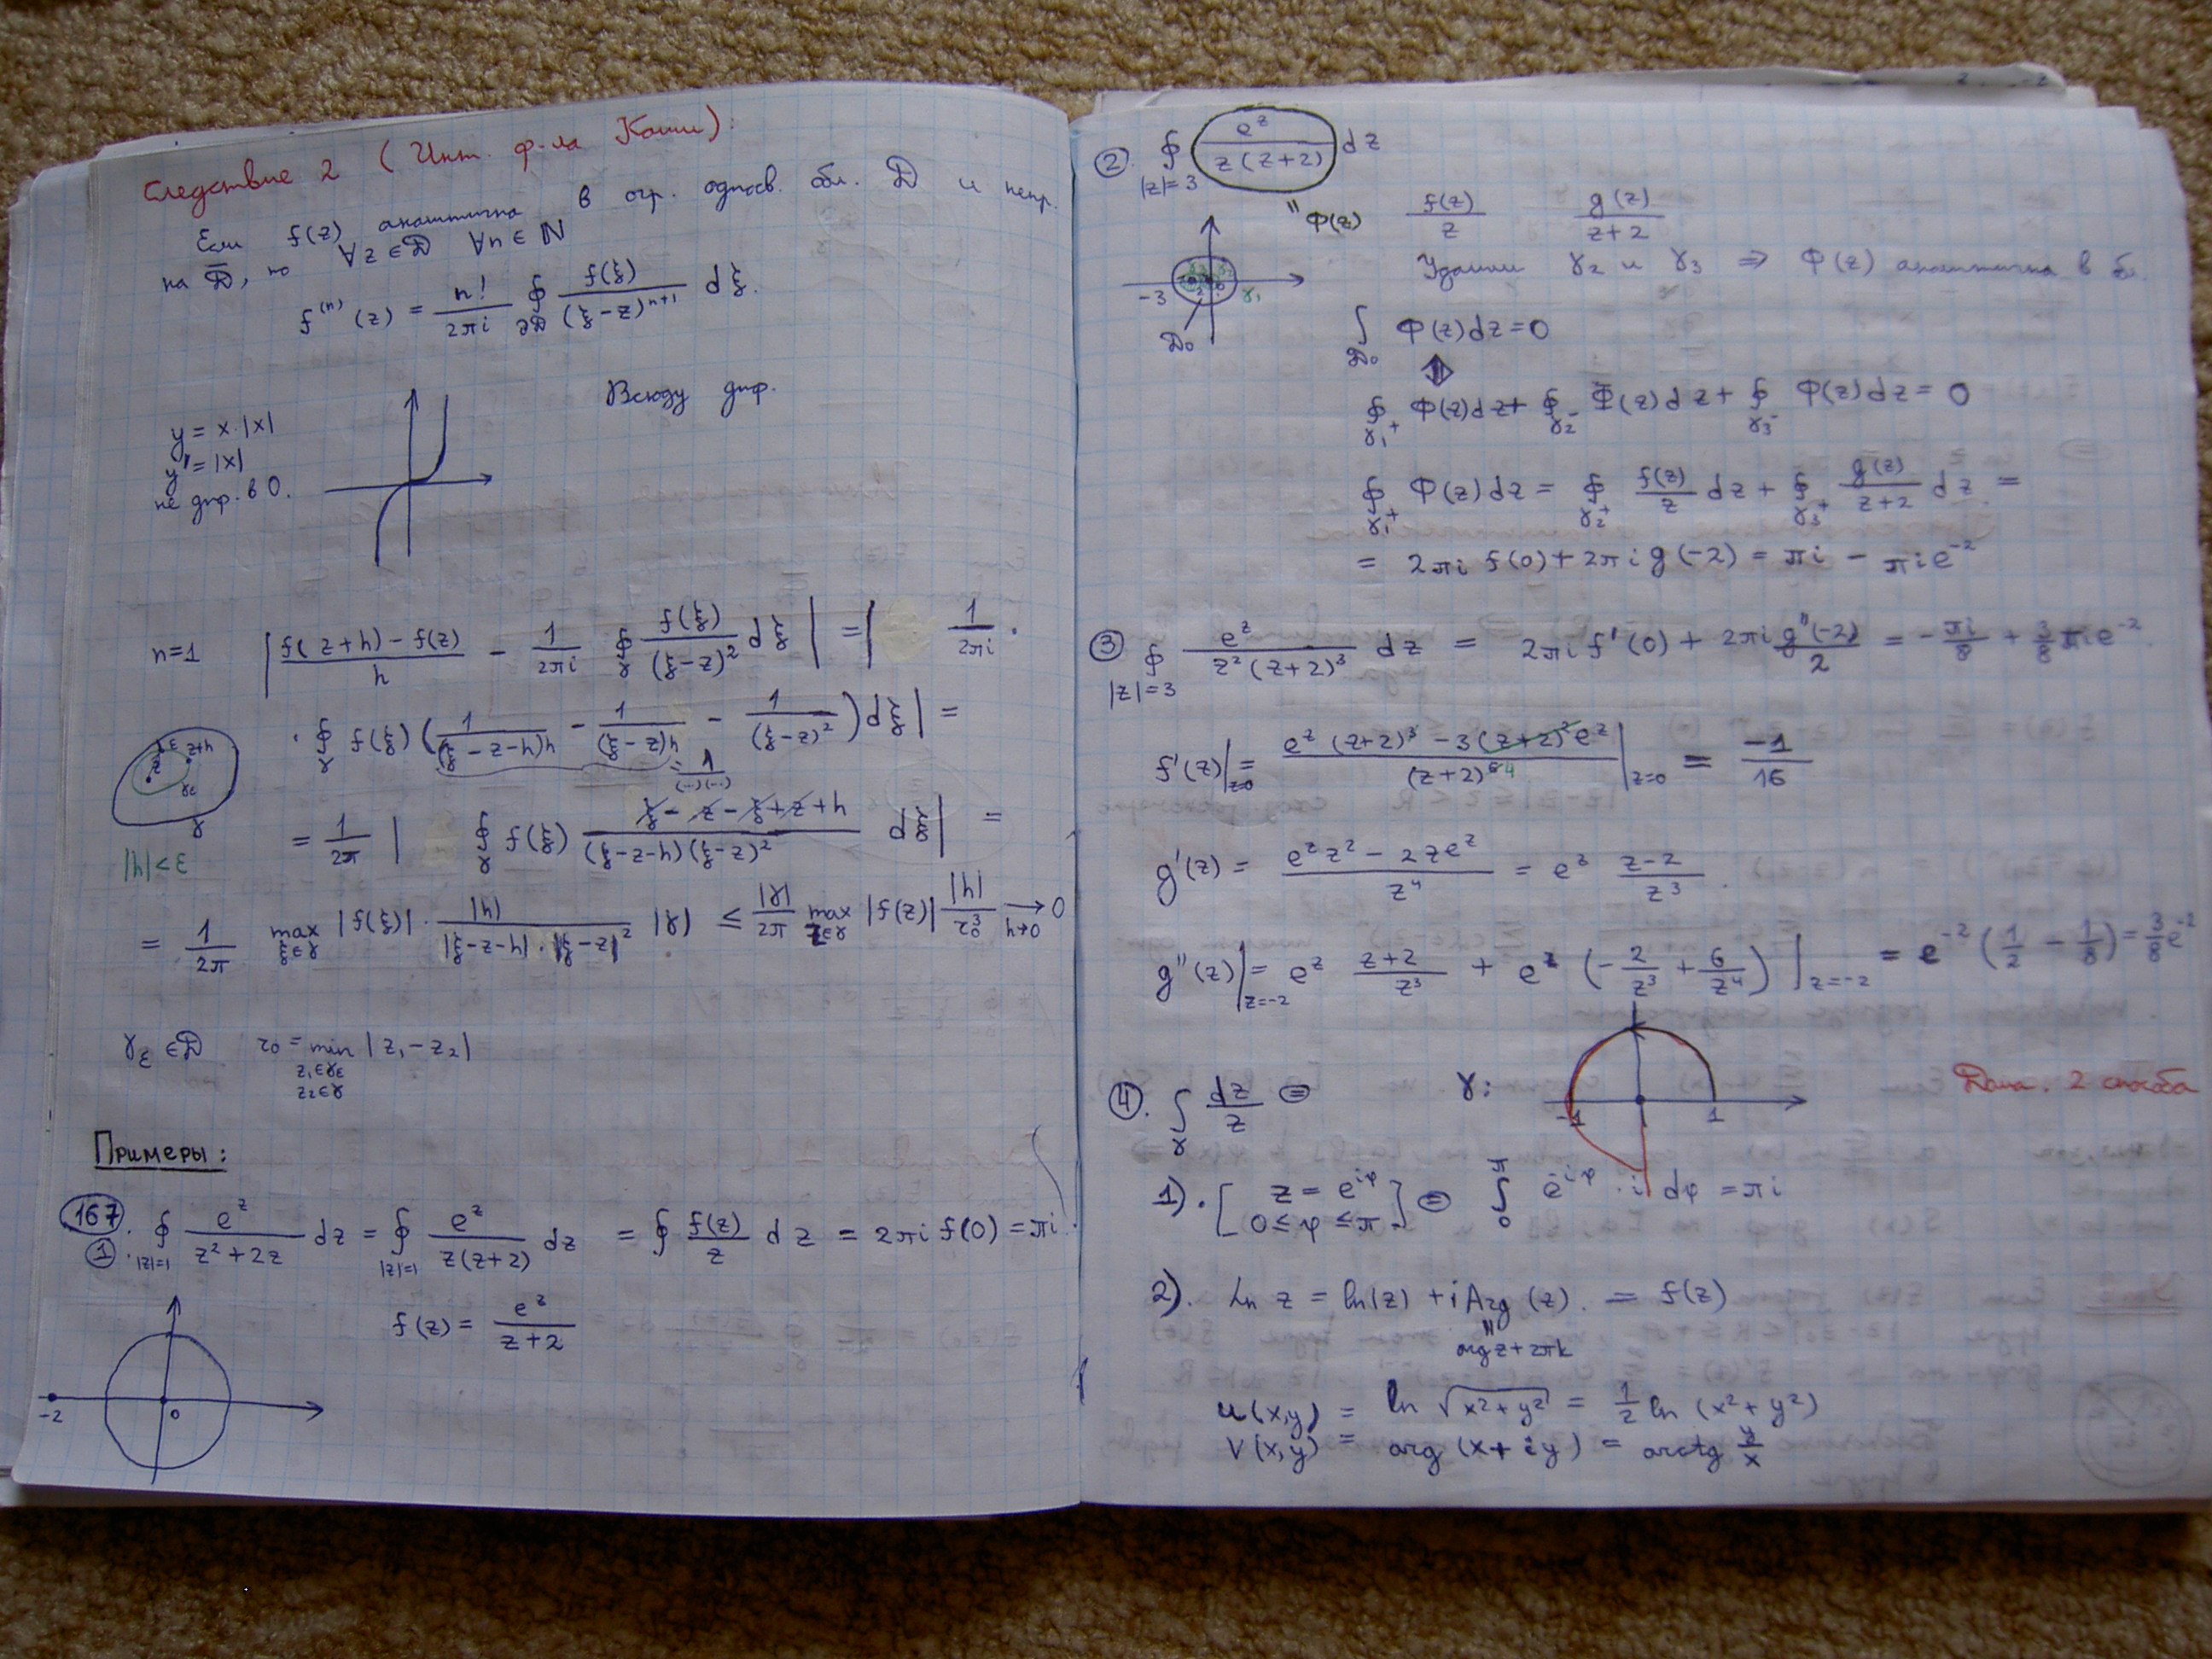 Следствие 2 (Инт. ф-ла Коши):
Если f(z) аналитична в огр. односв. обл. D и непр.
на D̅, то ∀z∈D ∀n∈N
f⁽ⁿ⁾(z) = n!/(2πi) ∮_{∂D} f(ξ)/(ξ-z)ⁿ⁺¹ dξ.
Всюду диф.
y = x·|x|
y' = |x|
не диф. в 0.
n=1 |(f(z+h)-f(z))/h - 1/(2πi) ∮_γ f(ξ)/(ξ-z)² dξ| = | 1/(2πi) ·
· ∮_γ f(ξ) (1/((ξ-z-h)h) - 1/((ξ-z)h) - 1/(ξ-z)²) dξ| =
= 1/((...)(...))
ξ z z+h γε
γ
|h|<ε
= 1/(2π) | ∮_γ f(ξ) (ξ-z-ξ+z+h)/((ξ-z-h)(ξ-z)²) dξ| =
= 1/(2π) max_{ξ∈γ} |f(ξ)| · |h|/(|ξ-z-h|·|ξ-z|²) |γ| ≤ |γ|/(2π) max_{z∈γ} |f(z)| |h|/r₀³ →_{h→0} 0
γ_ε ∈ D r₀ = min_{z₁∈γε z₂∈γ} |z₁-z₂|
Примеры:
167.
① ∮_{|z|=1} e^z/(z²+2z) dz = ∮_{|z|=1} e^z/(z(z+2)) dz = ∮ f(z)/z dz = 2πi f(0) = πi.
f(z) = e^z/(z+2)
-2 0
②. ∮_{|z|=3} e^z/(z(z+2)) dz
"Φ(z) f(z)/z g(z)/(z+2)
Удалим γ₂ и γ₃ ⇒ Φ(z) аналитична в
-3 γ₁
D₀
∫_{D₀} Φ(z)dz = 0
⇕
∮_{γ₁⁺} Φ(z)dz + ∮_{γ₂⁻} Φ(z)dz + ∮_{γ₃⁻} Φ(z)dz = 0
∮_{γ₁⁺} Φ(z)dz = ∮_{γ₂⁺} f(z)/z dz + ∮_{γ₃⁺} g(z)/(z+2) dz =
= 2πi f(0) + 2πi g(-2) = πi - πi e⁻²
③ ∮_{|z|=3} e^z/(z²(z+2)³) dz = 2πi f'(0) + 2πi g''(-2)/2 = -πi/8 + 3/8 πi e⁻².
f'(z)|_{z=0} = (e^z(z+2)³ - 3(z+2)²e^z)/(z+2)⁶ ⁴ |_{z=0} = -1/16
g'(z) = (e^z z² - 2z e^z)/z⁴ = e^z (z-2)/z³.
g''(z)|_{z=-2} = e^z (z+2)/z³ + e^z (-2/z³ + 6/z⁴)|_{z=-2} = e⁻² (1/2 - 1/8) = 3/8 e⁻²
④. ∫_γ dz/z ⊜ γ: -1 1
Дома. 2 способа
1). [z = e^{iφ} 0≤φ≤π] ⊜ ∫_0^π e^{-iφ} · i dφ = πi
2). Ln z = ln(z) + i Arg(z). = f(z)
"
arg z + 2πk
u(x,y) = ln √(x²+y²) = 1/2 ln (x²+y²)
v(x,y) = arg (x+iy) = arctg y/x